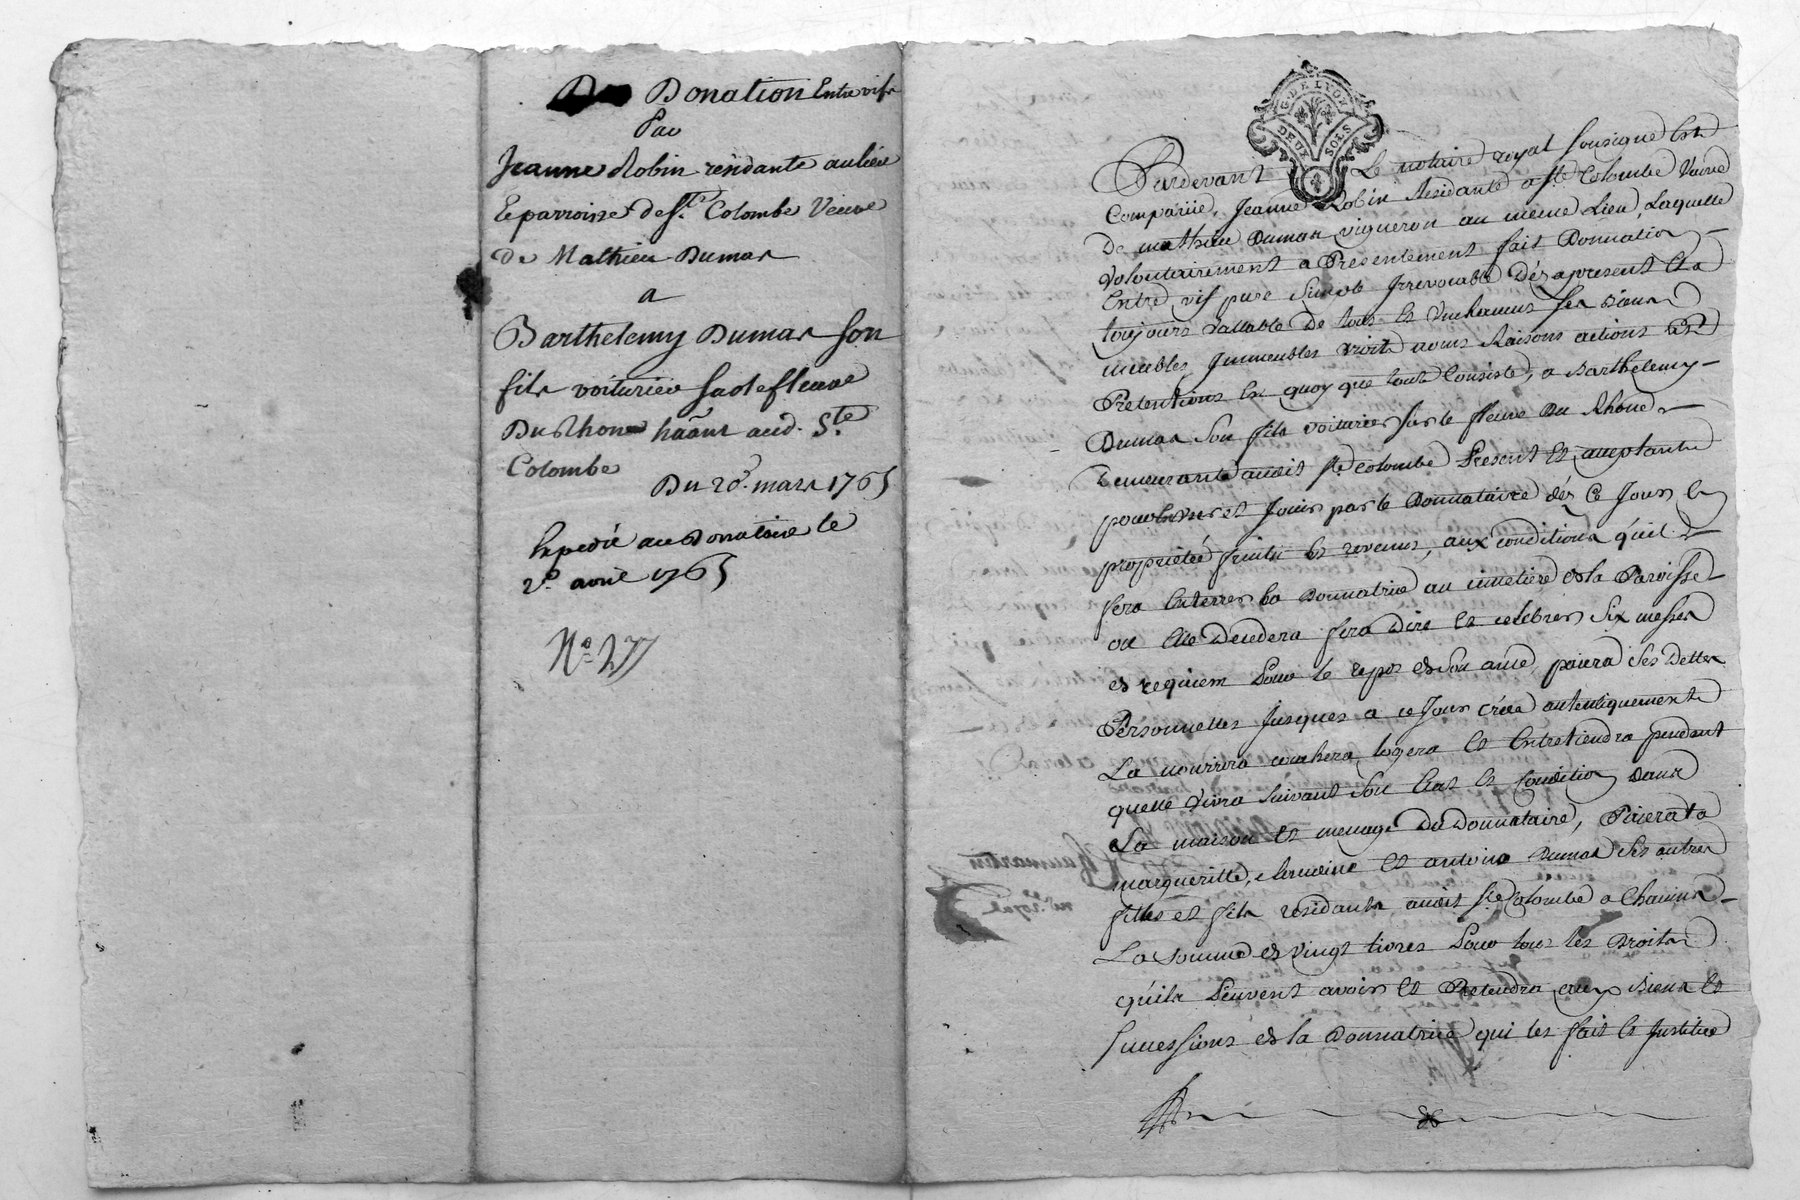 Donation Entre vifs
Par
Jeanne Robin residante au lieu
& parroisse de Ste. Colombe Veuve
de Mathieu Dumas
a
Barthelemy Dumas son
fils voiturier sur le fleuve
Du Rhone hãant aud. Ste
Colombe
Du 28. mars 1765
Expedié au Donataire le
2e. avril 1765
No. 277
G. DE LYON
DEUX SOLS
Pardevant Le notaire royal soussigné Est
Comparüe, Jeanne Robin Residante a Ste Colombe Veuve
De mathieu Dumas vigneron au même Lieu, Laquelle
Volontairement a Présentement fait Donnation
Entre vif pure Simple Irrevocable Dés apresent Et a
toujours vallable De tous Et Uns chacuns ses Biens
meubles Immeubles Droits noms Raisons actions Et
Prétentions En quoy que tout Consiste, a Barthelemy
Dumas Son fils voiturier sur le fleuve Du Rhone
Demeurant audit Ste Colombe Présent Et acceptant
pour et Jouir par le Donnataire dés Ce Jour En
propriétée fruits Et revenus, aux conditions qu'il
fera Enterrer la Donnatrice au cimetiere de la Paroisse
ou Elle Decedera fera Dire Et celebrer Six messes
de requiem Pour le repos de Son ame, paiera Ses Dettes
Personnelles Jusques a ce Jour créée autentiquement
La nourrira couchera logera Et Entretiendra pendant
quelle vivra Suivant Son Etat Et Condition Dans
La maison Et menage Du Donnataire, Paiera a
marguerite, Et antoine Dumas Ses autres
filles et fils residants audit Ste Colombe a Chacun
La somme de vingt livres Pour tous les Droits
qu'ils Peuvent avoir Et Pretendre aux Biens Et
Successions de la Donnatrice qui les fait Et Institue